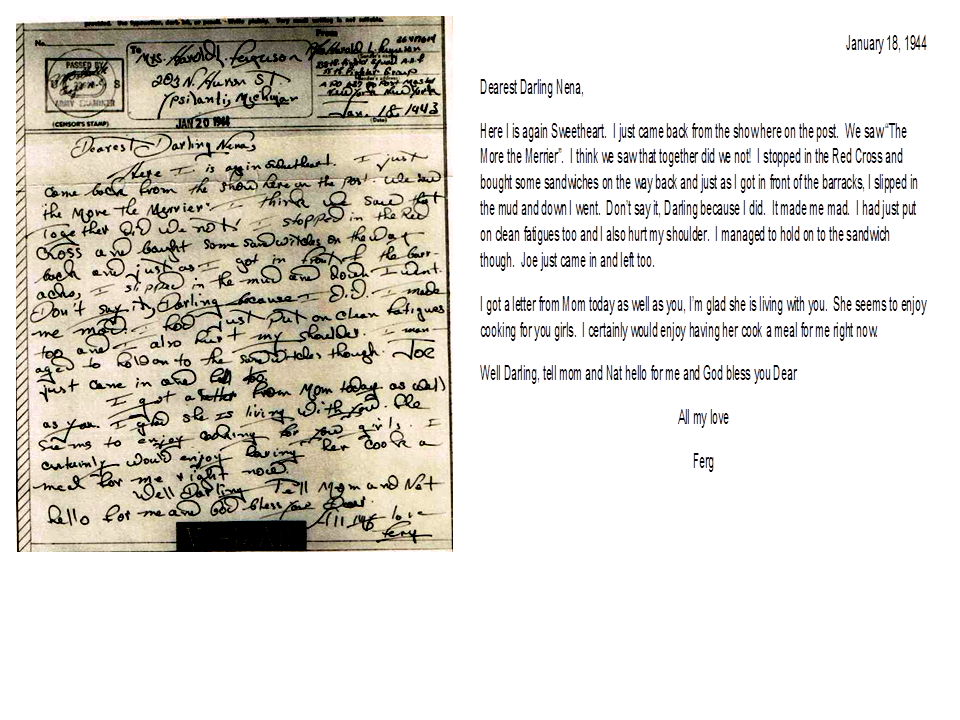 provided. Use typewriter, dark ink, or pencil. Write plainly. Very small writing is not suitable.
No.
PASSED BY
U S
ARMY EXAMINER
(CENSOR'S STAMP)
To
Mrs. Harold L. Ferguson
203 N. Huron St
Ypsilanti, Michigan
JAN 20 1944
From
Harold L. Ferguson
(Sender's name)
(Sender's address)
New York New York
Jan. 18, 1943
(Date)
Dearest Darling Nena,
Here I is again Sweetheart. I just
came back from the show here on the post. We saw
the More The Merrier. I think we saw that
together did we not! I stopped in the Red
Cross and bought some sandwitches on the way
back and just as I got in front of the barr-
acks, I slipped in the mud and down I went.
Don't say it, Darling because I did. I made
me mad. I had just put on clean fatigues
too and I also hurt my shoulder. I man-
aged to hold on to the sandwitches though. Joe
just came in and left too.
I got a letter from Mom today as well
as you. I glad she is living with you. She
seems to enjoy cooking for you girls. I
certainly would enjoy having her cook a
meal for me right now.
Well Darling Tell Mom and Nat
hello for me and God bless you Dear.
All my love
Ferg
January 18, 1944
Dearest Darling Nena,
Here I is again Sweetheart. I just came back from the show here on the post. We saw "The
More the Merrier". I think we saw that together did we not! I stopped in the Red Cross and
bought some sandwiches on the way back and just as I got in front of the barracks, I slipped in
the mud and down I went. Don't say it, Darling because I did. It made me mad. I had just put
on clean fatigues too and I also hurt my shoulder. I managed to hold on to the sandwich
though. Joe just came in and left too.
I got a letter from Mom today as well as you, I'm glad she is living with you. She seems to enjoy
cooking for you girls. I certainly would enjoy having her cook a meal for me right now.
Well Darling, tell mom and Nat hello for me and God bless you Dear
All my love
Ferg